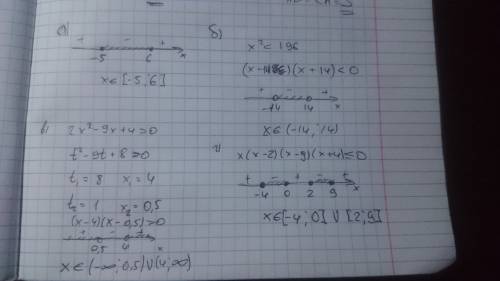 а)
+ - +
-5 6 x
x∈[-5;6]
б)
x²< 196
(x-14)(x+14)<0
+ - +
-14 14 x
x∈(-14;14)
в)
2x²-9x+4>0
t²-9t+8>0
t₁ = 8 x₁ = 4
t₂ = 1 x₂ = 0,5
(x-4)(x-0,5)>0
+ - +
0,5 4 x
x∈(-∞;0,5)∪(4;∞)
г)
x(x-2)(x-9)(x+4)≤0
+ - + - +
-4 0 2 9 x
x∈[-4;0] ∪ [2;9]